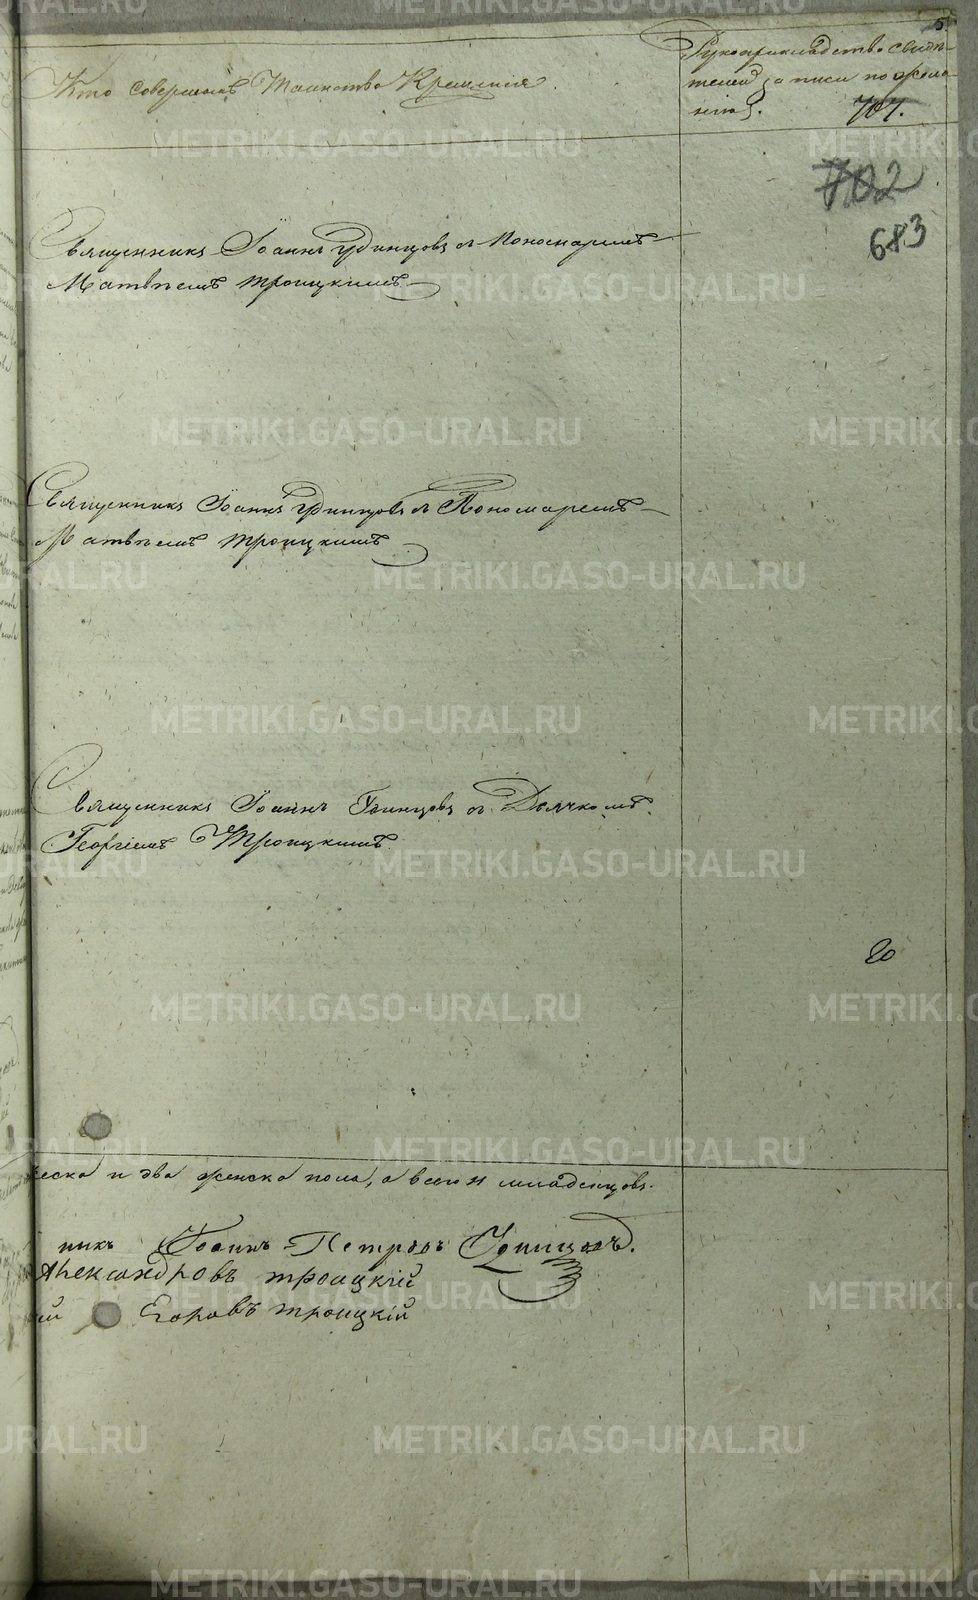 5
Кто совершалъ Таинство Крещенія.
Рукоприкладство свидѣ-
телей записи по жела-
нію.
707.
702
683
Священникъ Іоаннъ Удинцовъ съ Пономаремъ
Матвѣемъ Троицкимъ
Священникъ Іоаннъ Удинцовъ съ Пономаремъ
Матвѣемъ Троицкимъ
Священникъ Іоаннъ Удинцовъ съ Дьячкомъ
Георгіемъ Троицкимъ
еска и два женска пола, а всего младенцовъ.
никъ Іоаннъ Петровъ Удинцовъ.
Александровъ троицкій
ій Егоровъ троицкій
METRIKI.GASO-URAL.RU